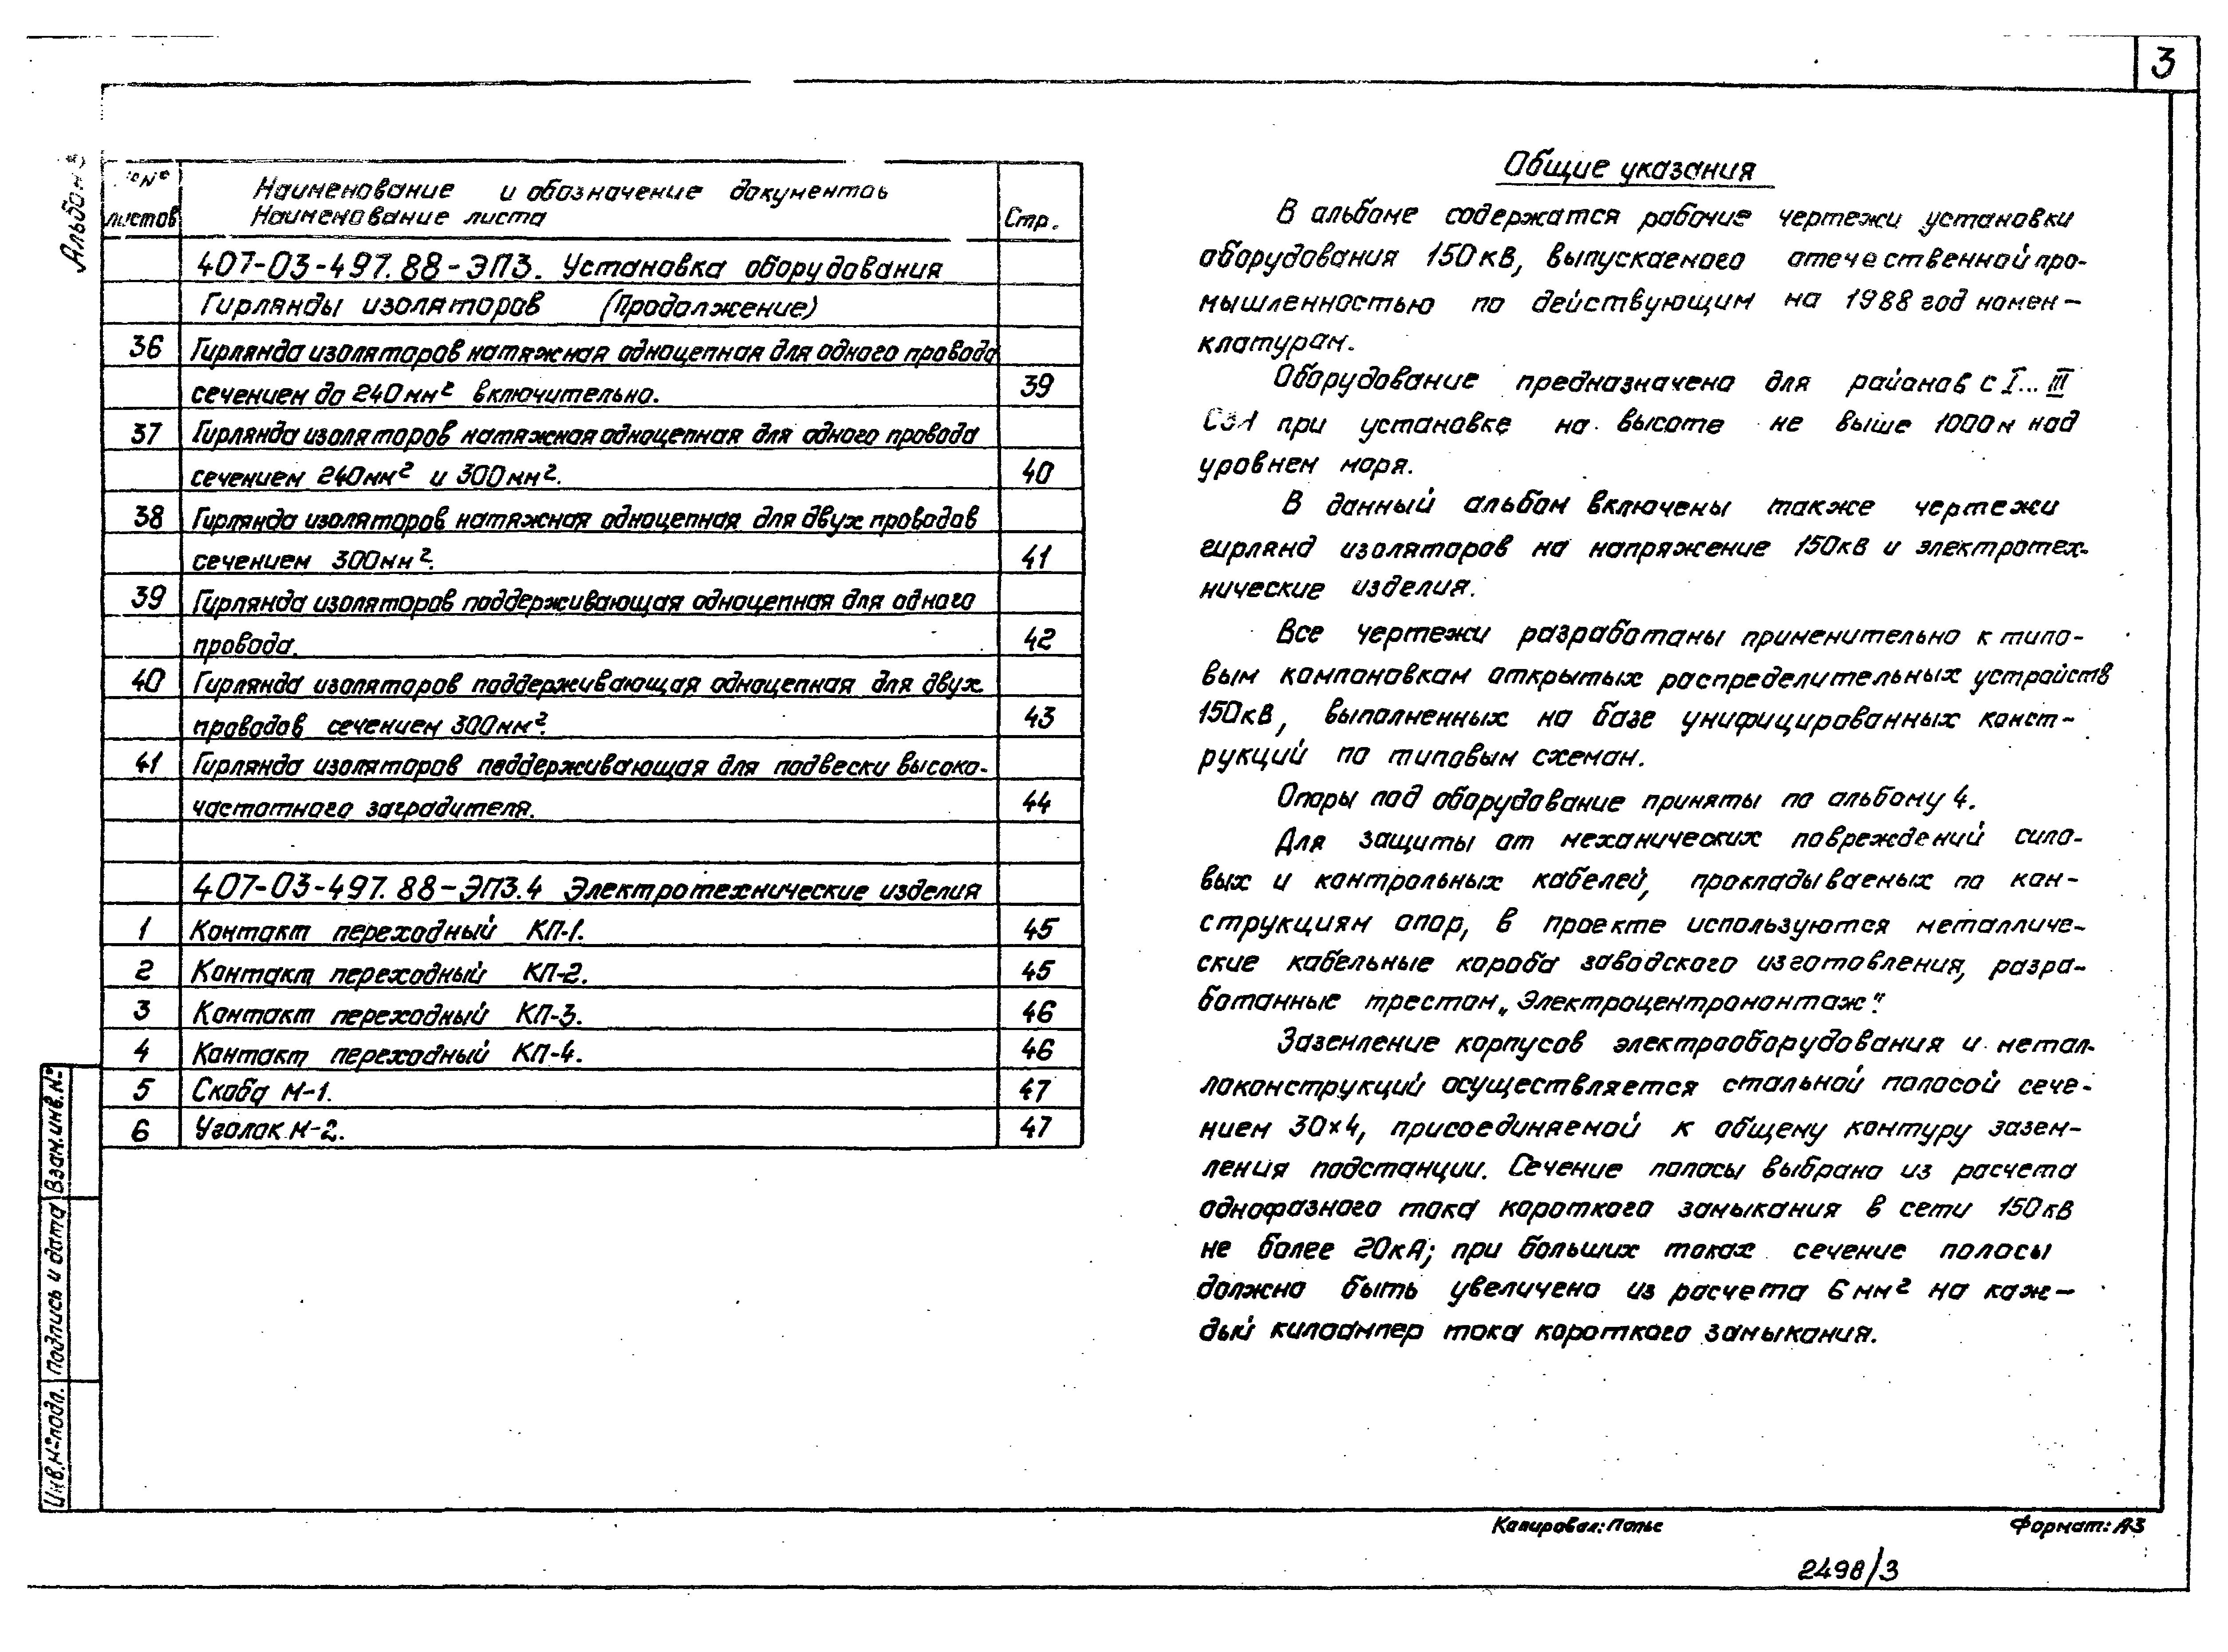 3
Альбом 3
№№ листов
Наименование и обозначение документов
Наименование листа
Стр.
407-03-497.88-ЭП3. Установка оборудования
Гирлянды изоляторов (Продолжение)
36 Гирлянда изоляторов натяжная одноцепная для одного провода
сечением до 240мм² включительно. 39
37 Гирлянда изоляторов натяжная одноцепная для одного провода
сечением 240мм² и 300мм². 40
38 Гирлянда изоляторов натяжная одноцепная для двух проводов
сечением 300мм². 41
39 Гирлянда изоляторов поддерживающая одноцепная для одного
провода. 42
40 Гирлянда изоляторов поддерживающая одноцепная для двух
проводов сечением 300мм². 43
41 Гирлянда изоляторов поддерживающая для подвески высоко-
частотного заградителя. 44
407-03-497.88-ЭП3.4 Электротехнические изделия
1 Контакт переходный КП-1. 45
2 Контакт переходный КП-2. 45
3 Контакт переходный КП-3. 46
4 Контакт переходный КП-4. 46
5 Скоба М-1. 47
6 Уголок М-2. 47
Общие указания
В альбоме содержатся рабочие чертежи установки
оборудования 150кВ, выпускаемого отечественной про-
мышленностью по действующим на 1988 год номен-
клатурам.
Оборудование предназначено для районов с I... III
СЗА при установке на высоте не выше 1000м над
уровнем моря.
В данный альбом включены также чертежи
гирлянд изоляторов на напряжение 150кВ и электротех-
нические изделия.
Все чертежи разработаны применительно к типо-
вым компоновкам открытых распределительных устройств
150кВ, выполненных на базе унифицированных конст-
рукций по типовым схемам.
Опоры под оборудование приняты по альбому 4.
Для защиты от механических повреждений сило-
вых и контрольных кабелей, прокладываемых по кон-
струкциям опор, в проекте используются металличе-
ские кабельные короба заводского изготовления, разра-
ботанные трестом „Электроцентромонтаж".
Заземление корпусов электрооборудования и метал-
локонструкций осуществляется стальной полосой сече-
нием 30×4, присоединяемой к общему контуру зазем-
ления подстанции. Сечение полосы выбрано из расчета
однофазного тока короткого замыкания в сети 150кВ
не более 20кА; при больших токах сечение полосы
должно быть увеличено из расчета 6мм² на каж-
дый килоампер тока короткого замыкания.
Инв.№подл. Подпись и дата Взам.инв.№
Копировал: Попье
Формат: А3
2498/3